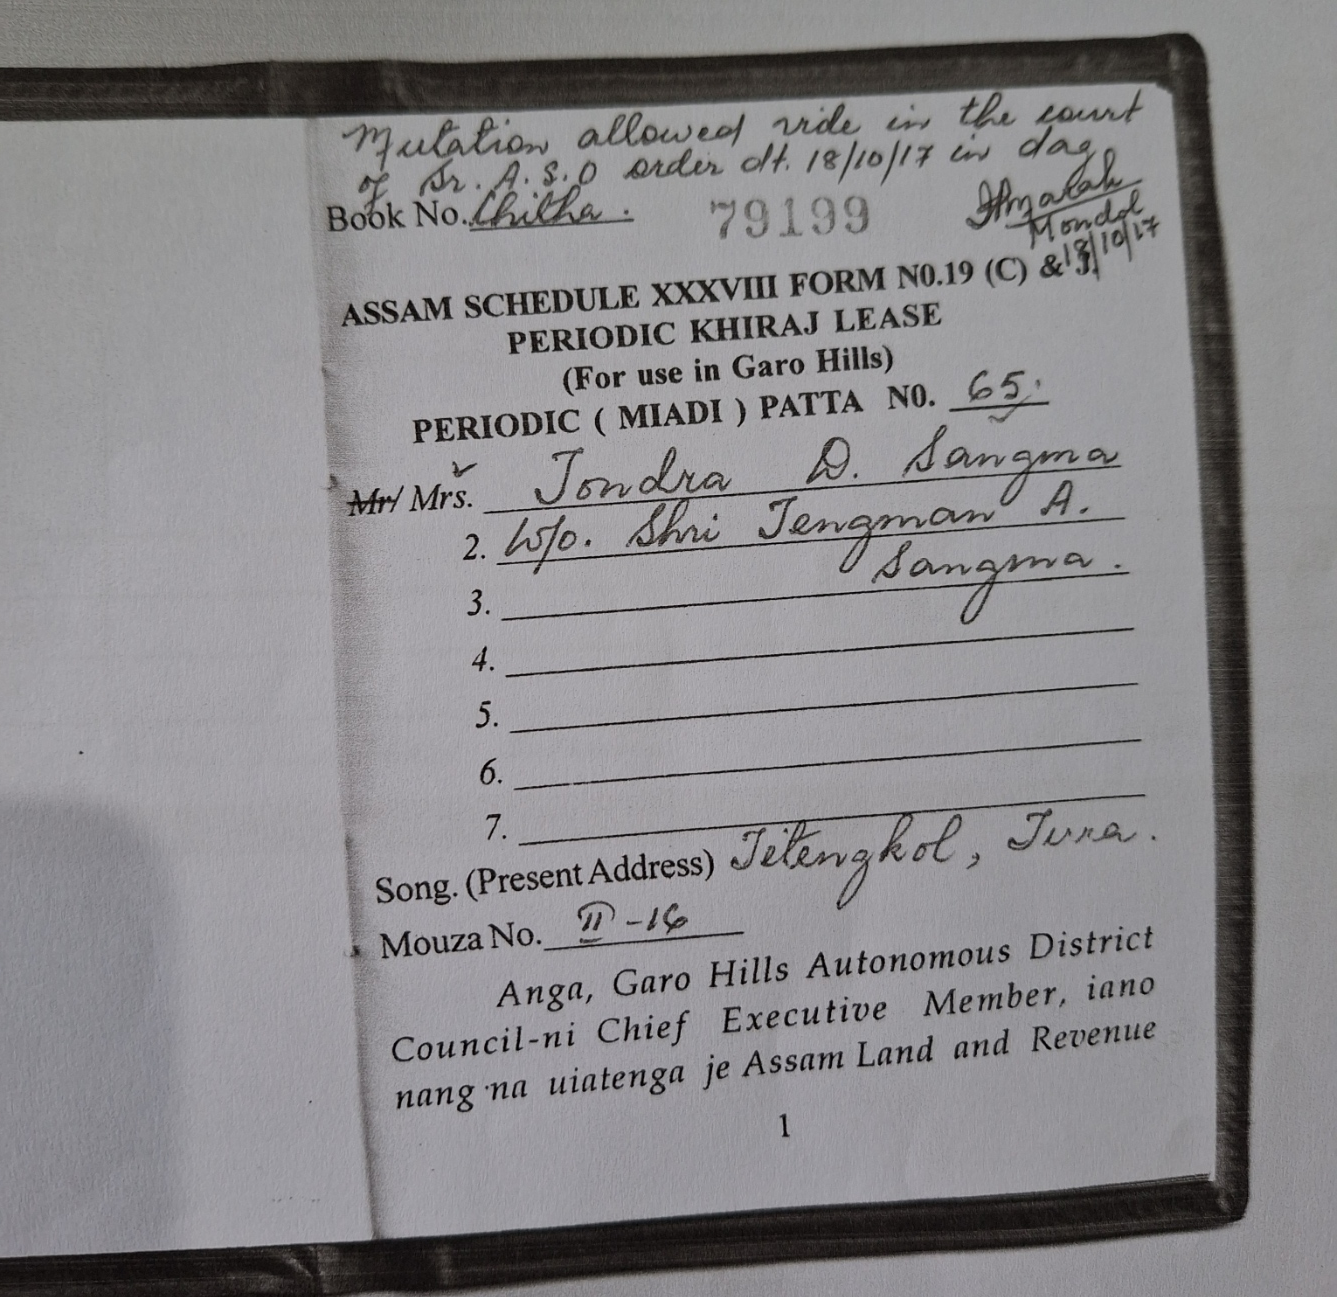 Mutation allowed vide in the court
of Sr. A.S.O order dt. 18/10/17 in dag
Book No. Chitha. 79199
Mondol
18/10/17
ASSAM SCHEDULE XXXVIII FORM N0.19 (C) & J.
PERIODIC KHIRAJ LEASE
(For use in Garo Hills)
PERIODIC ( MIADI ) PATTA N0. 65.
Mr/ Mrs. Jondra D. Sangma
2. W/o. Shri Jengman A.
Sangma.
3.
4.
5.
6.
7.
Song. (Present Address) Tetengkol, Tura.
Mouza No. II-16
Anga, Garo Hills Autonomous District
Council-ni Chief Executive Member, iano
nang·na uiatenga je Assam Land and Revenue
1